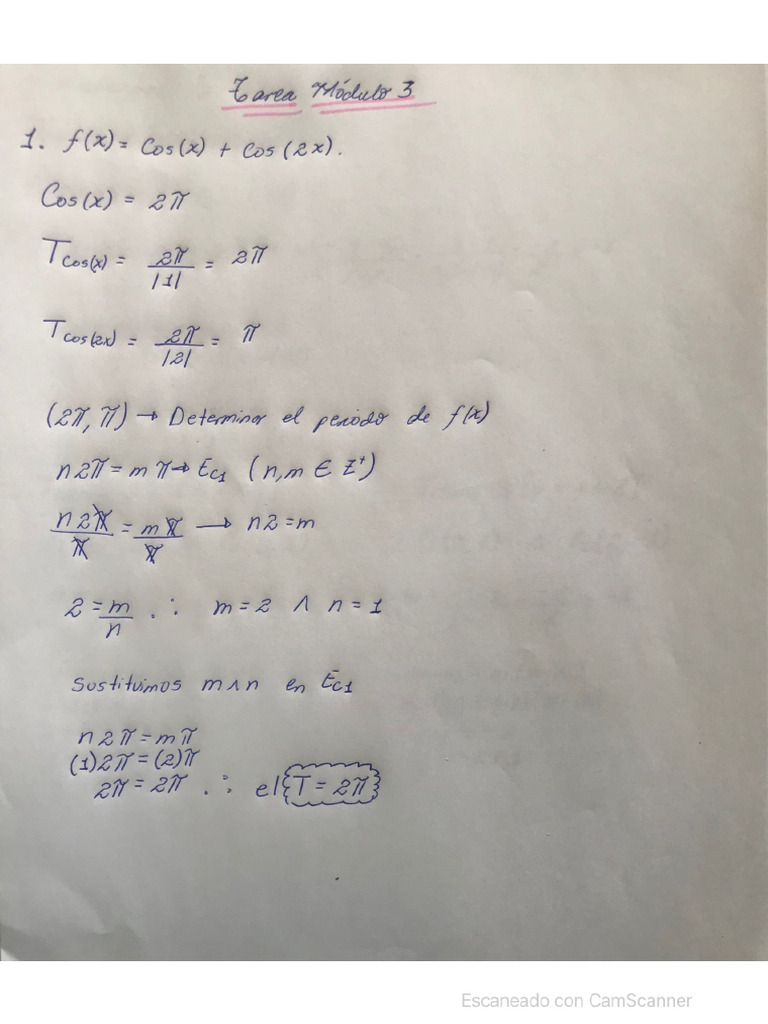 Tarea Módulo 3
1. f(x) = Cos(x) + Cos(2x).
Cos(x) = 2π
T cos(x) = 2π / |1| = 2π
T cos(2x) = 2π / |2| = π
(2π, π) → Determinar el periodo de f(x)
n2π = mπ → Ec1 (n,m ∈ Z⁺)
n2π / π = mπ / π → n2 = m
2 = m / n ∴ m = 2 ∧ n = 1
Sustituimos m∧n en Ec1
n2π = mπ
(1)2π = (2)π
2π = 2π ∴ el T = 2π
Escaneado con CamScanner